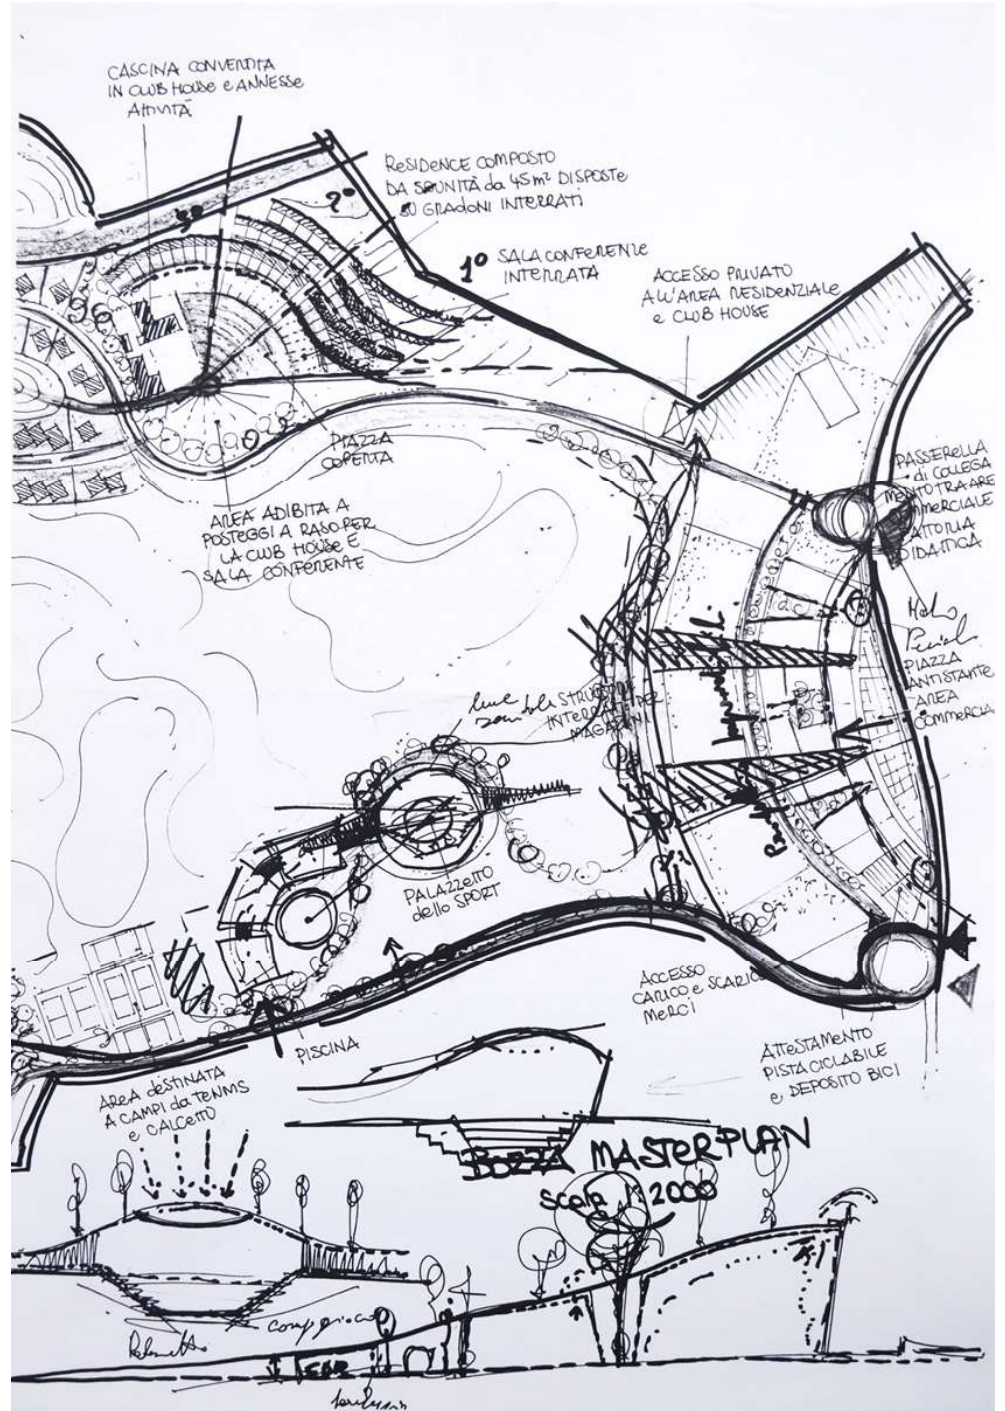 CASCINA CONVERTITA
IN CLUB HOUSE e ANNESSE
ATTIVITÀ
RESIDENCE COMPOSTO
UNITÀ da 45 m² DISPOSTE
SU GRADONI INTERRATI
2°
3°
1° SALA CONFERENZE
INTERRATA
ACCESSO PRIVATO
ALL'AREA RESIDENZIALE
e CLUB HOUSE
PIAZZA
COPERTA
AREA ADIBITA A
POSTEGGI A RASO PER
LA CLUB HOUSE E
SALA CONFERENZE
PASSERELLA
di COLLEGA
MENTO TRA AREA
COMMERCIALE
FATTORIA
DIDATTICA
PIAZZA
ANTISTANTE
AREA
COMMERCIA
INTERRATE DEI
MAGAZZINI
PALAZZETTO
dello SPORT
ACCESSO
CARICO e SCARICO
MERCI
PISCINA
ATTESTAMENTO
PISTA CICLABILE
e DEPOSITO BICI
AREA destinata
A CAMPI da TENNIS
e CALCETTO
BOZZA MASTERPLAN
Scala 1:2000